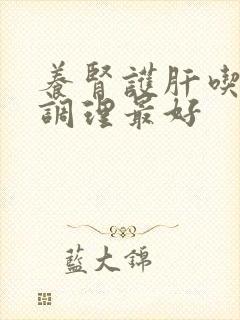 養腎護肝喫
調理最好
藍大錦